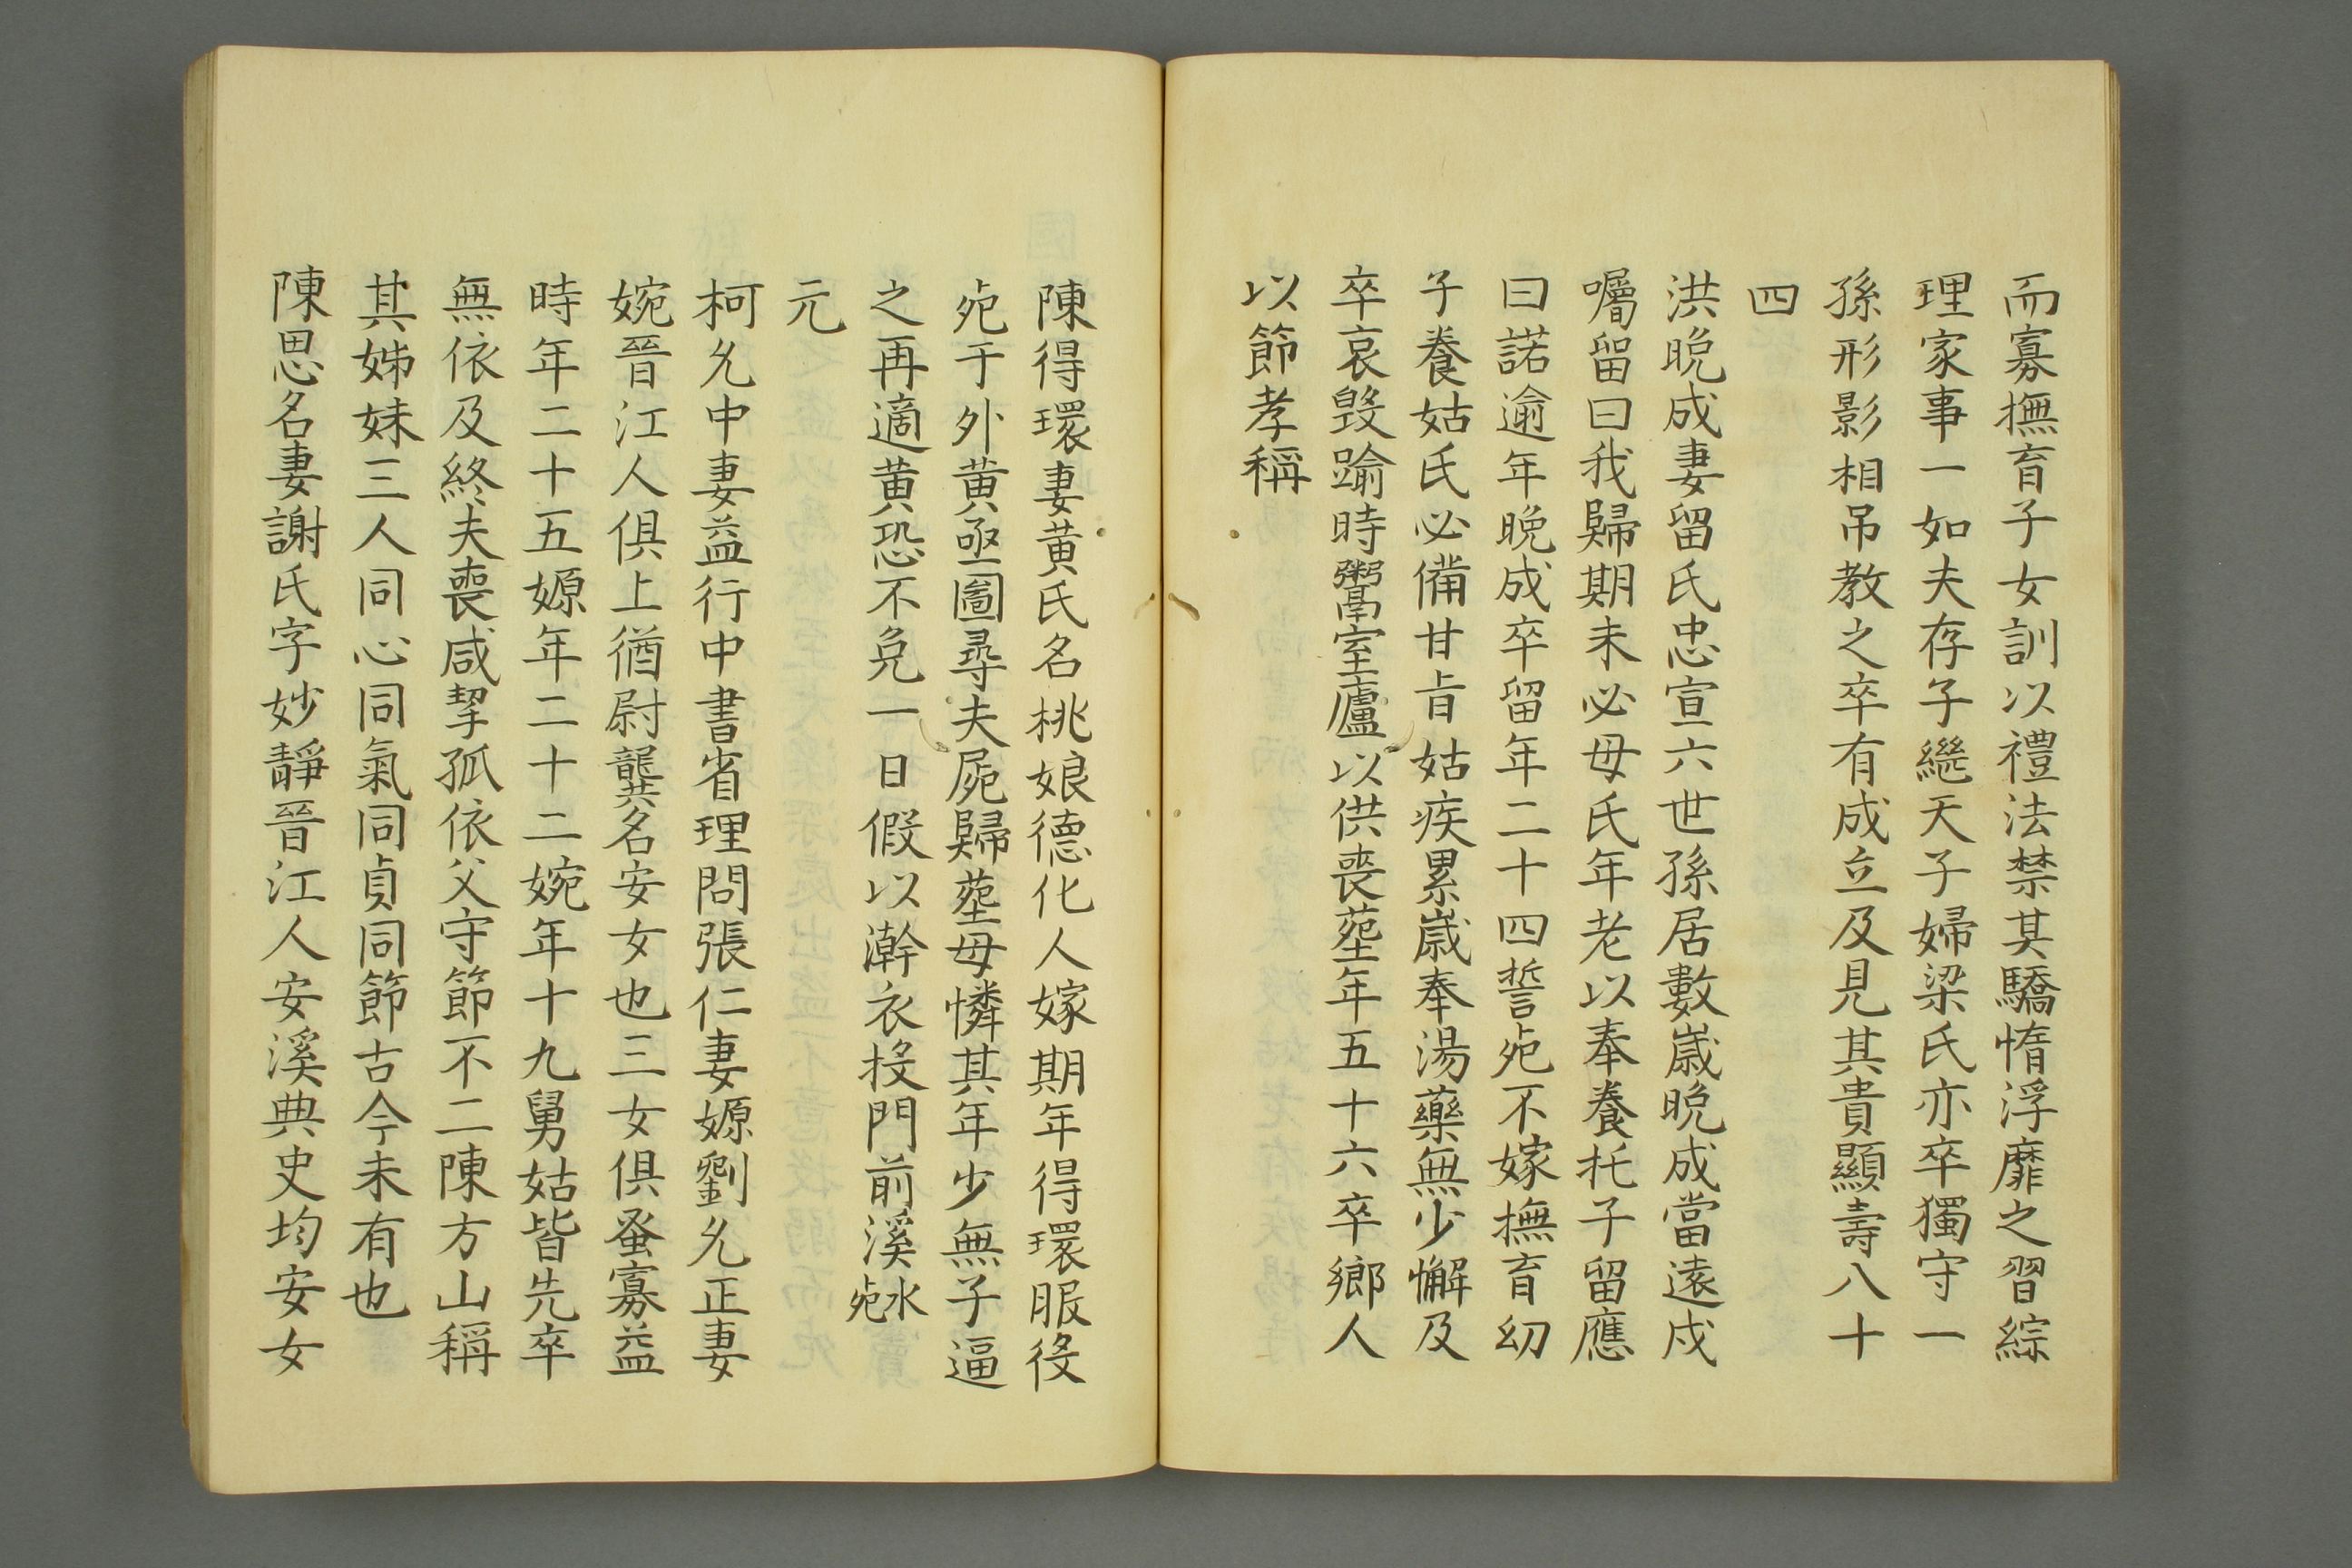 而寡撫育子女訓以禮法禁其驕惰浮靡之習綜
理家事一如夫存子繼夭子婦梁氏亦卒獨守一
孫形影相吊教之卒有成立及見其貴顯壽八十
四
洪晚成妻留氏忠宣六世孫居數歲晚成當遠戍
囑留曰我歸期未必母氏年老以奉養托子留應
曰諾逾年晚成卒留年二十四誓死不嫁撫育幼
子養姑氏必備甘旨姑疾累歲奉湯藥無少懈及
卒哀毀踰時鬻室廬以供喪塟年五十六卒鄉人
以節孝稱
陳得環妻黃氏名桃娘德化人嫁期年得環服役
死于外黃亟圖尋夫屍歸塟母憐其年少無子逼
之再適黃恐不免一日假以澣衣投門前溪水死
元
柯允中妻益行中書省理問張仁妻嫄劉允正妻
婉晉江人俱上猶尉龔名安女也三女俱蚤寡益
時年二十五嫄年二十二婉年十九舅姑皆先卒
無依及終夫喪咸挈孤依父守節不二陳方山稱
其姊妹三人同心同氣同貞同節古今未有也
陳思名妻謝氏字妙靜晉江人安溪典史均安女